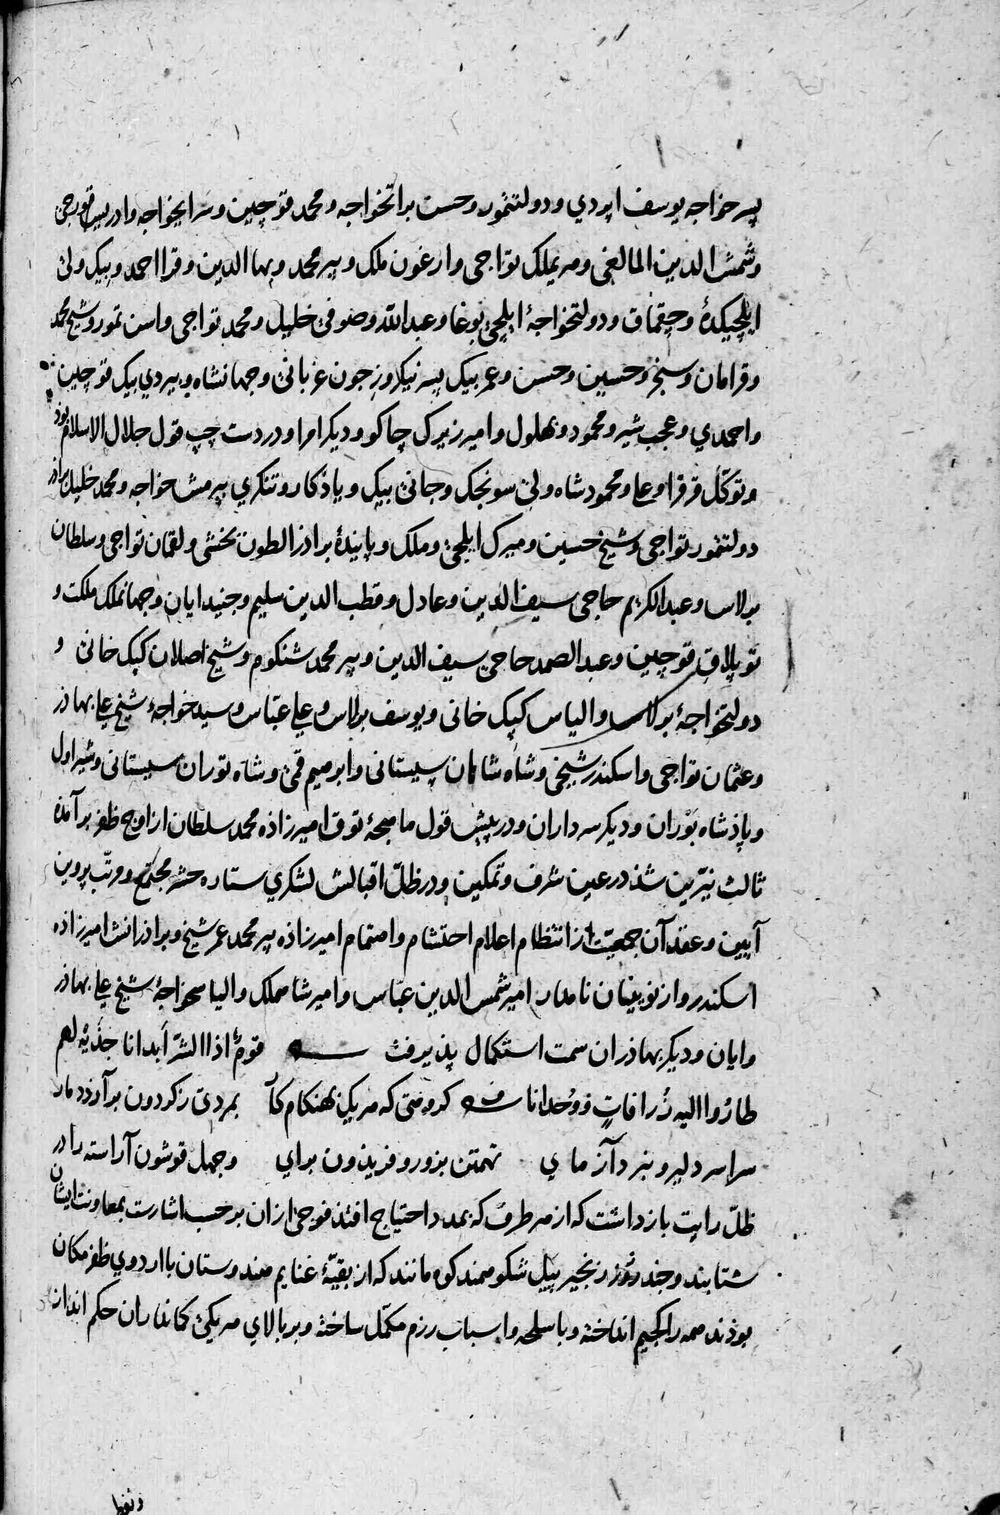 پسر خواجه یوسف اپردی و دولتتمور و حسن براتخواجه و محمد قوچین و سرایخواجه و ادریس قورچی
و شمس الدین المالغی و هریملک تواجی و ارغون ملک و پیر محمد و بها الدین و قرا احمد و بیک ولی
ایلچیکدهٔ و چقماق و دولتخواجهٔ ایلچی بوغا و عبد الله و صوفی خلیل و محمد تواجی و اسن تمور و شیخ محمد
و قرامان و سنجر و حسین و حسن و عمر بیک پسر نیکروز جون غربانی و جهانشاه و بیردی بیک قوچین
و احمدی و عجب شیر و محمود و بهلول و امیر زیرک چاکو و دیکر امرا و در دست چپ قول جلال الاسلام بوذ
و توکل قرقرا و علی و محمود شاه ولی سونجک و جانی بیک و یاذکار و تنکری بیرمش خواجه و محمد خلیل براذر
دولتتمور تواجی و شیخ حسین و میرک ایلچی و ملک و پایندهٔ براذر الطون بخشی و لقمان تواجی و سلطان
برلاس و عبد الکریم حاجی سیف الدین و عادل و قطب الدین سلیم و جنید ایان و جهانملک ملکت و
توپلاق قوچین و عبد الصمد حاجی سیف الدین و پیر محمد شنکوم و شیخ اصلان کپک خانی و
دولتخواجهٔ برلاس و الیاس کپک خانی و یوسف برلاس و علی عباس و سید خواجهٔ شیخ علی بهاذر
و عثمان تواجی و اسکندر شیخی و شاه شاهان سیستانی و ابرهیم قمی و شاه توران سیستانی و شیر اول
و پاذشاه بوران و دیکر سرداران و در پیش قول ماهجهٔ توق امیرزاذه محمد سلطان از اوج ظفر برآمذه
ثالث نیرین شذ در عین شرف و تمکین و در ظل اقبالش لشکری ستاره حشر مجتمع و مرتب پروین
آیین و عقد آن جمعیت از انتظام اعلام احتشام و اهتمام امیرزاذه پیر محمد عمر شیخ و براذرانش امیرزاذه
اسکندر و از نوینان نامدار امیر شمس الدین عباس و امیر شاهملک و الیاسخواجهٔ شیخ علی بهاذر
و ایان و دیکر بهاذران سمت استکمال پذیرفت قوم اذا الشر ابدا ناجذیه لهم
طاروا الیه زرافات و وحدانا کروهی که هر یک بهنکام کار بمردی ز کردون برآورد دمار
سراسر دلیر و نبرد آزمای تهمتن بزور و فریذون برای و چهل قوشون آراسته را در
ظل رایت بازداشت که از هر طرف که بمدد احتیاج افتذ فوجی از آن بر حسب اشارت بمعاونت ایشان
شتابند و چند زنجیر پیل شکوهمند کوه مانند که از بقیهٔ غنایم هندوستان با اردوی ظفر مکان
بوذند همه را کجیم انداخته و باسلحه و اسباب رزم مکمل ساخته و بر بالای هر یکی کمانداران حکم انداز